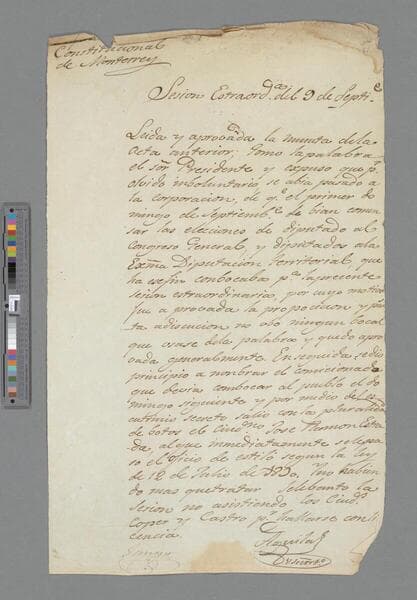 Constitucional
de Monterrey
Sesion Estraord.ª del 9 de Septi.e
Leida y aprovada la minuta de la
Acta anterior; tomo la palabra
el Sôr Presidente y expuso que p.r
olvido imboluntario, se abia pasado a
la corporacion, el q.e el primer do
mingo de Septiemb.e se bian comen
sar las elecciones de diputado al
Congreso General, y diputados ala
Exma Diputacion Territorial que
ha este fin combocaba p.a la precente
sesion estraordinaria, por cuyo motivo
fue a provada la propocicion y pues
ta adiscucion no ubo ningun bocal
que usase dela palabra y quedo apro
vada generalmente. En seguida se dio
principio a nombrar el comicionado
que devia combocar al pueblo el do
mingo siguiente y por medio de es
cutinio secreto salio con la pluralidad
de botos el Ciud.no Jose Ramon Estra
da, al que inmediatamente sele pa
so el oficio de estilo segun la ley
de 12 de Julio de 1830. Y no habien
do mas que tratar se lebanto la
Sesion no asistiendo los Ciud.s
Coper y Castro p.r hallarse con li
cencia.